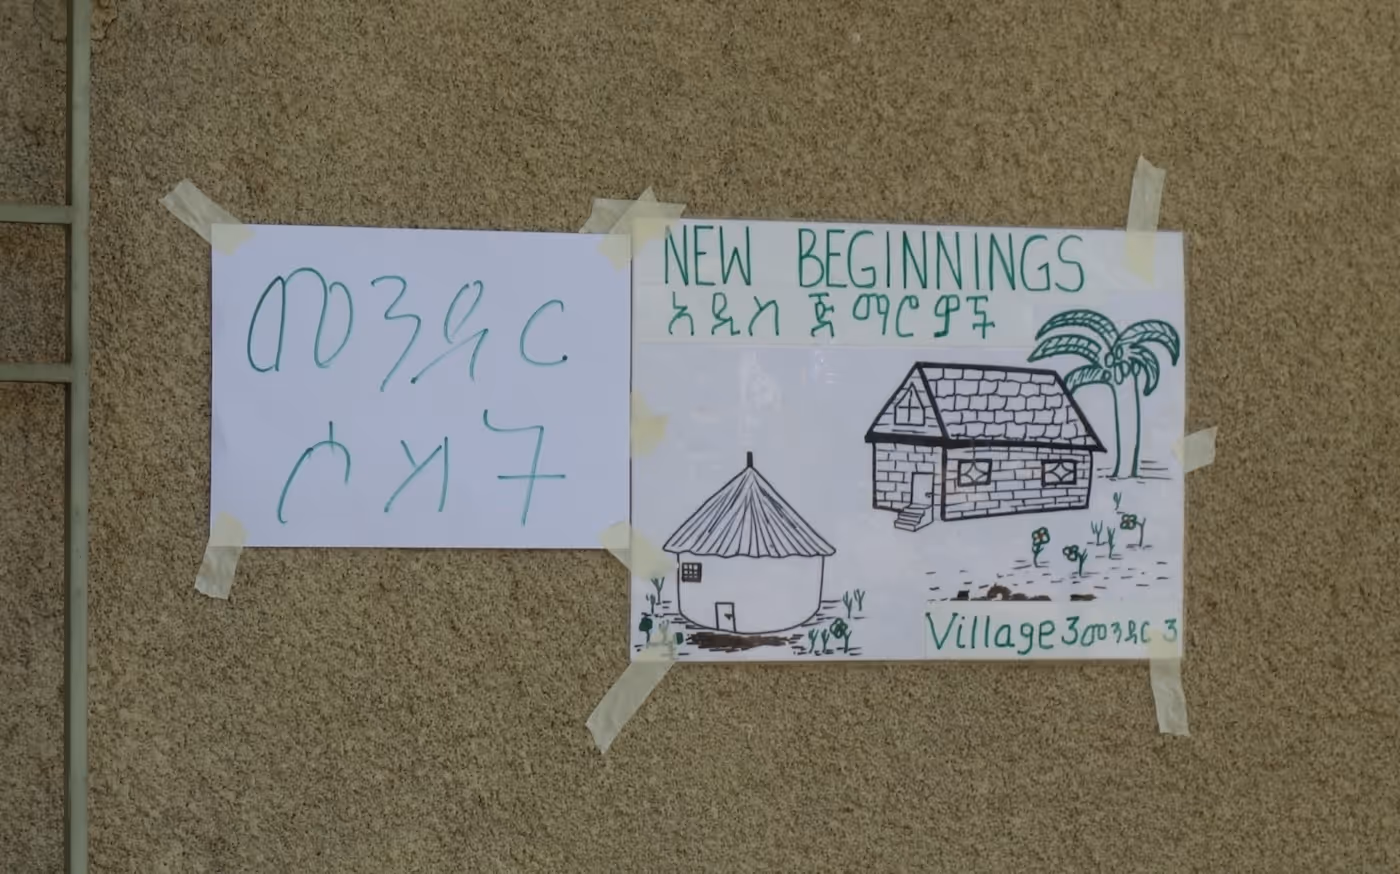 መንደር
ሶስት
NEW BEGINNINGS
አዲስ ጅማሮዎች
Village 3 መንደር 3